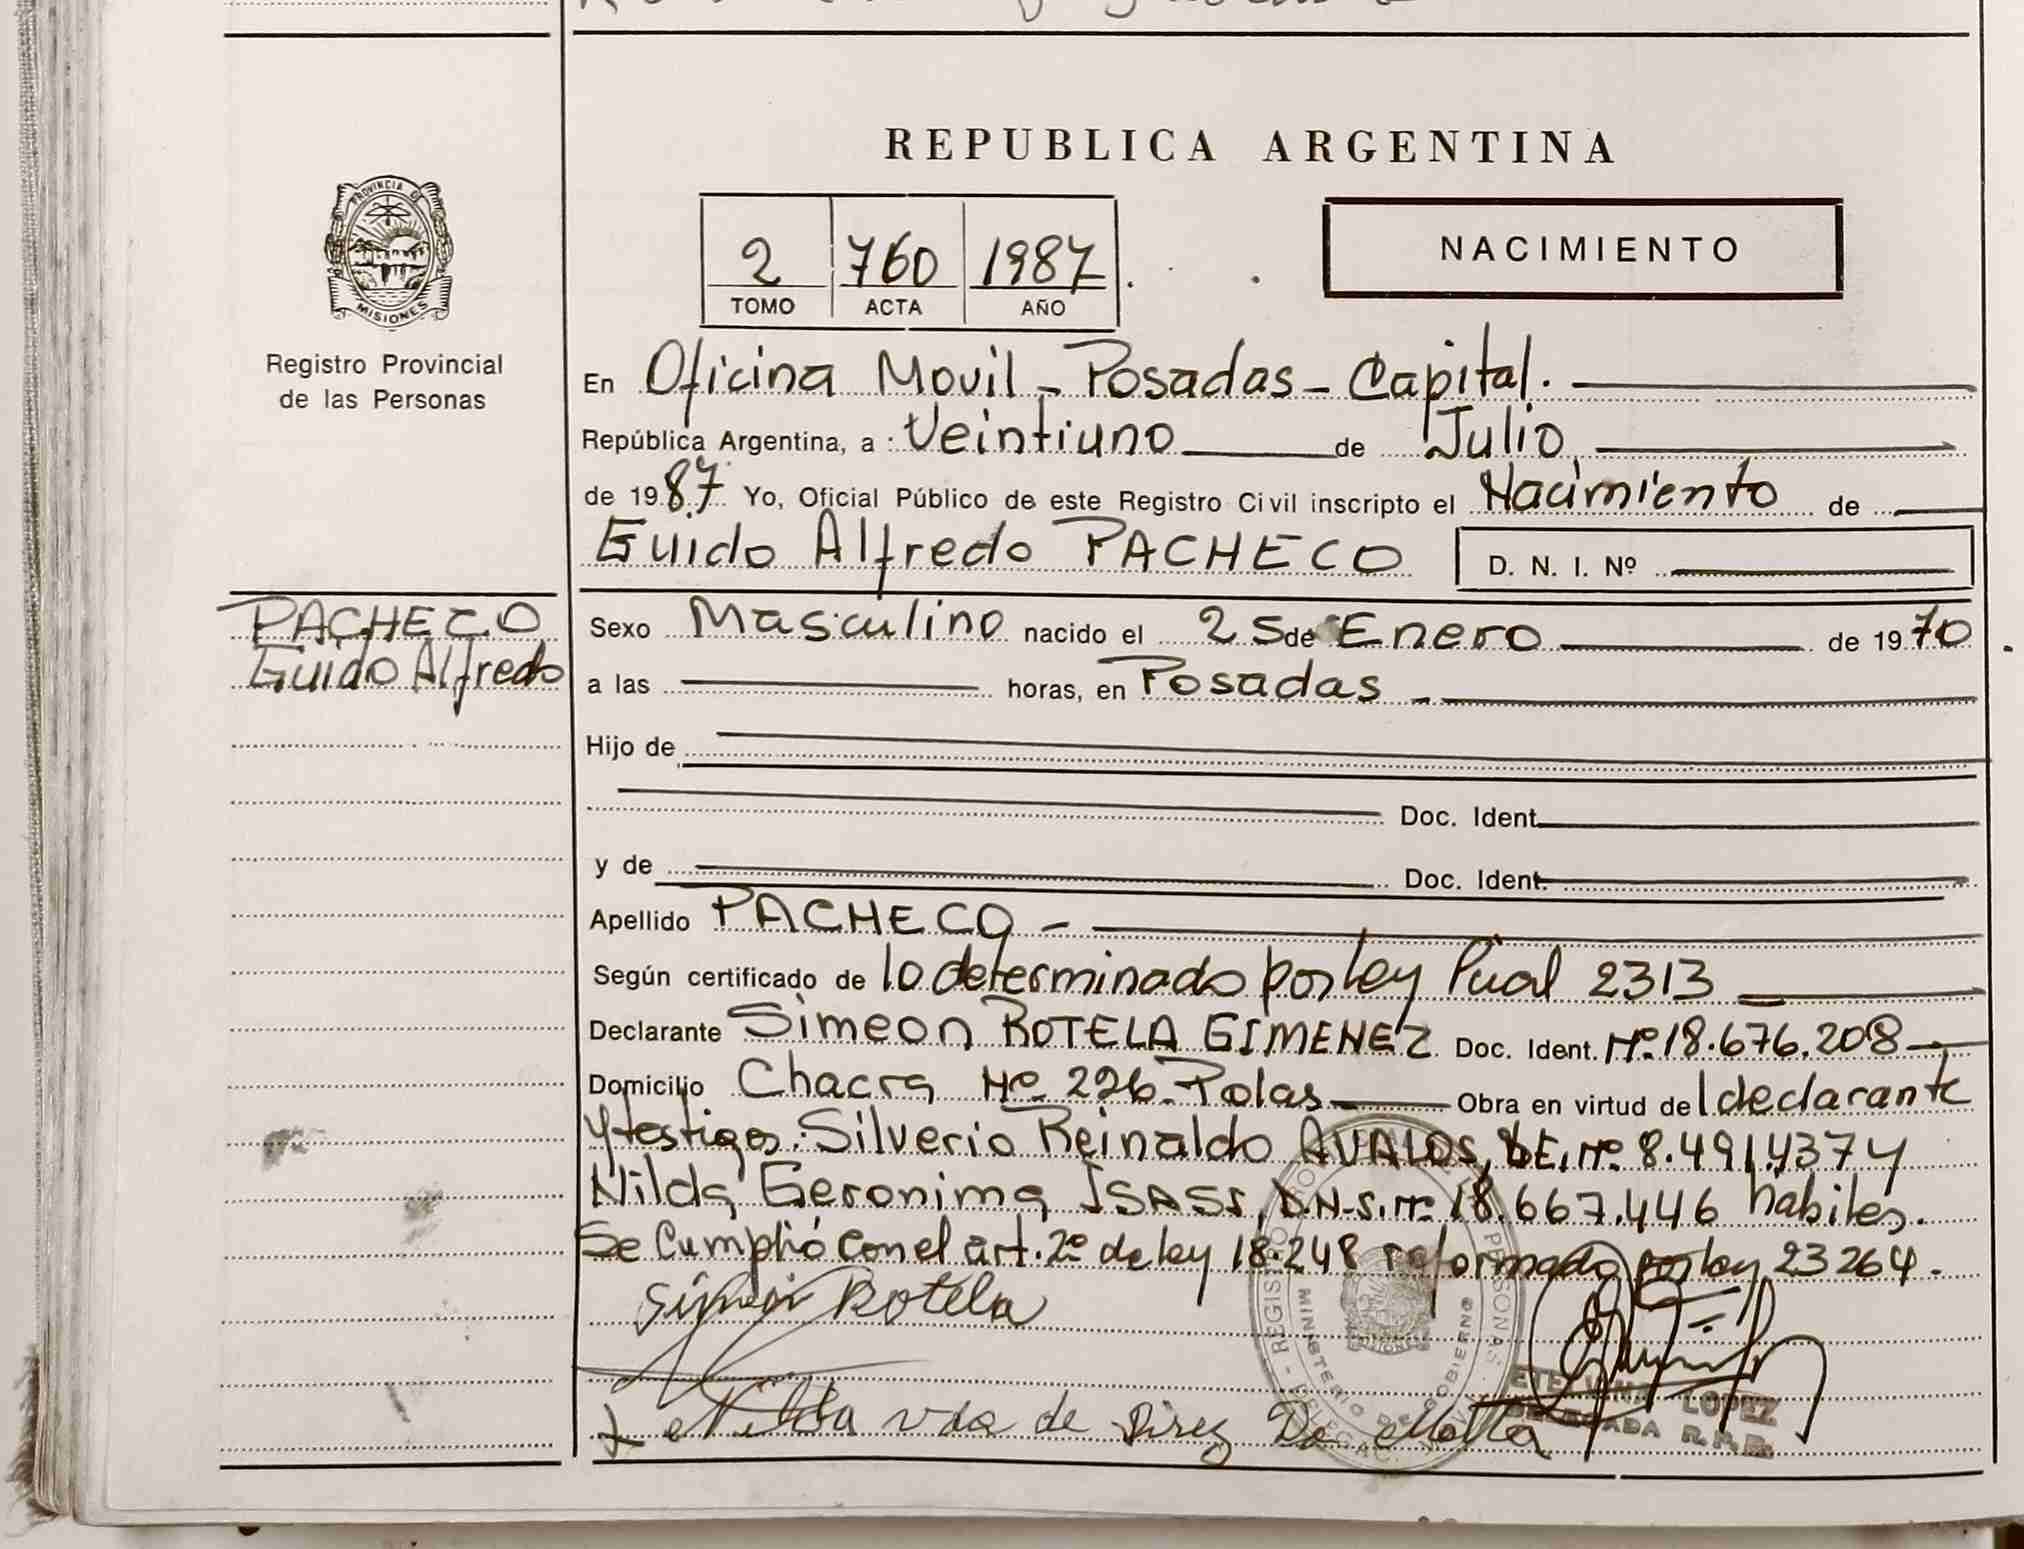 REPUBLICA ARGENTINA
PROVINCIA DE
MISIONES
Registro Provincial
de las Personas
2 760 1987
TOMO ACTA AÑO
NACIMIENTO
En Oficina Movil - Posadas - Capital.
República Argentina, a : Veintiuno de Julio
de 1987 Yo, Oficial Público de este Registro Civil inscripto el Nacimiento de
Guido Alfredo PACHECO D. N. I. Nº
PACHECO
Guido Alfredo
Sexo Masculino nacido el 25 de Enero de 1970
a las horas, en Posadas -
Hijo de
Doc. Ident.
y de Doc. Ident.
Apellido PACHECO -
Según certificado de lo determinado por ley Pcial 2313
Declarante Simeon ROTELA GIMENEZ Doc. Ident. Nº 18.676.208
Domicilio Chacra Nº 226 - Pdas Obra en virtud del declarante
y testigos: Silverio Reinaldo AVALOS, Nº 8.491.437 y
Nilda Geronima ISASS, D.N.I. Nº 18.667.446 habiles.
Se Cumplió con el art. 2º de ley 18.248 reformado por ley 23264.
Simeon Rotela
Nilda vda de Pirez De Motta
MINISTERIO DE GOBIERNO
LOPEZ
DELEGADA R.P.P.